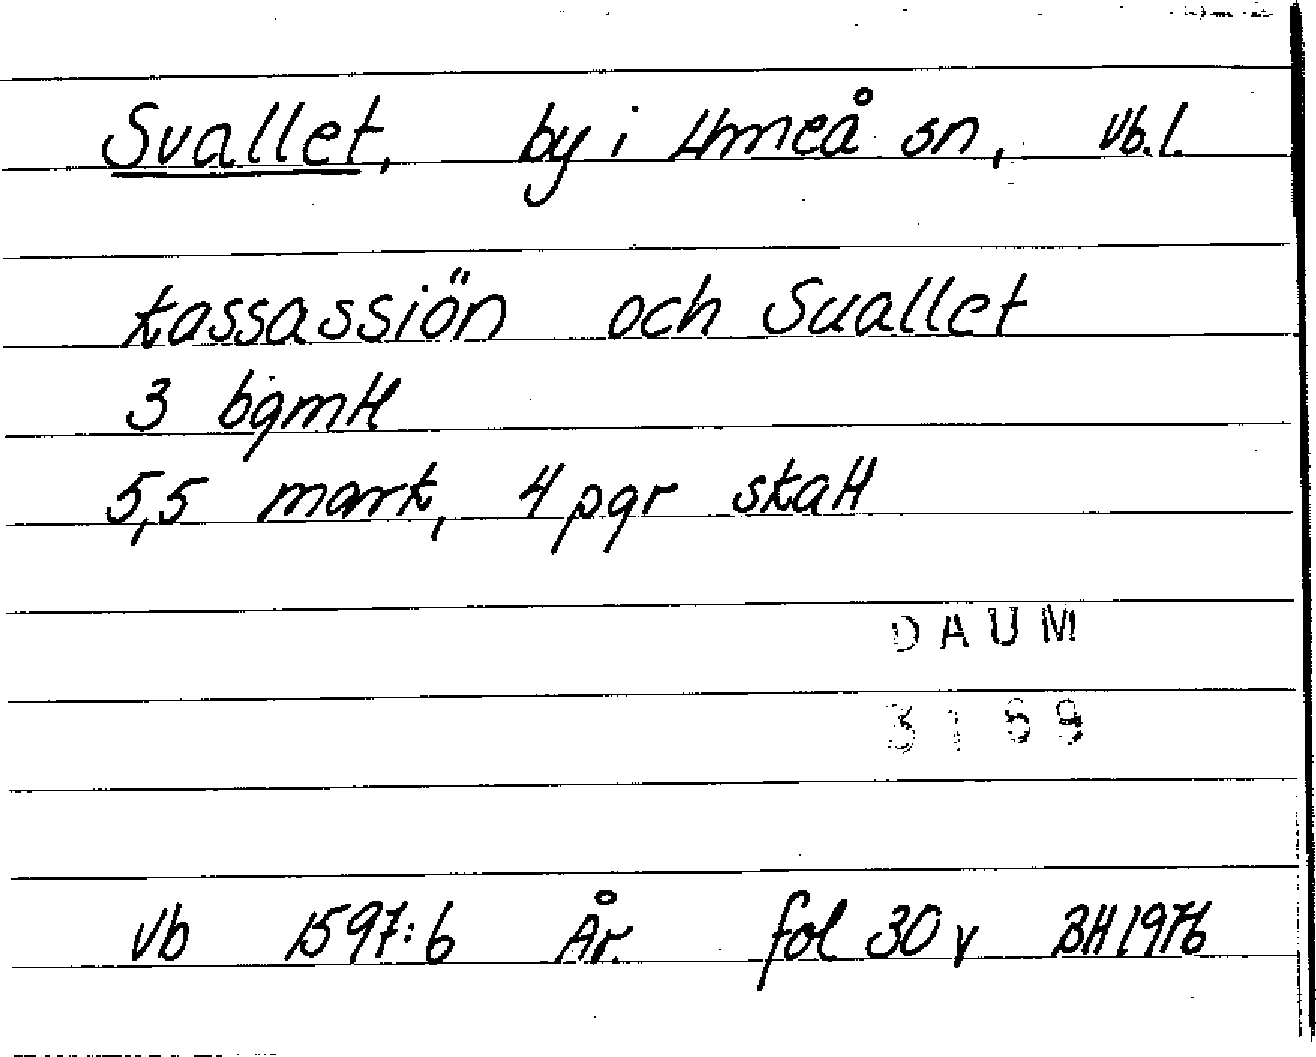 Svallet, by i Umeå sn, Vb.l.
kassassiön och Suallet
3 bgmtl
5,5 mark, 4 pgr skatt
DAUM
3169
Vb 1597:6 År. fol 30 v BH 1976